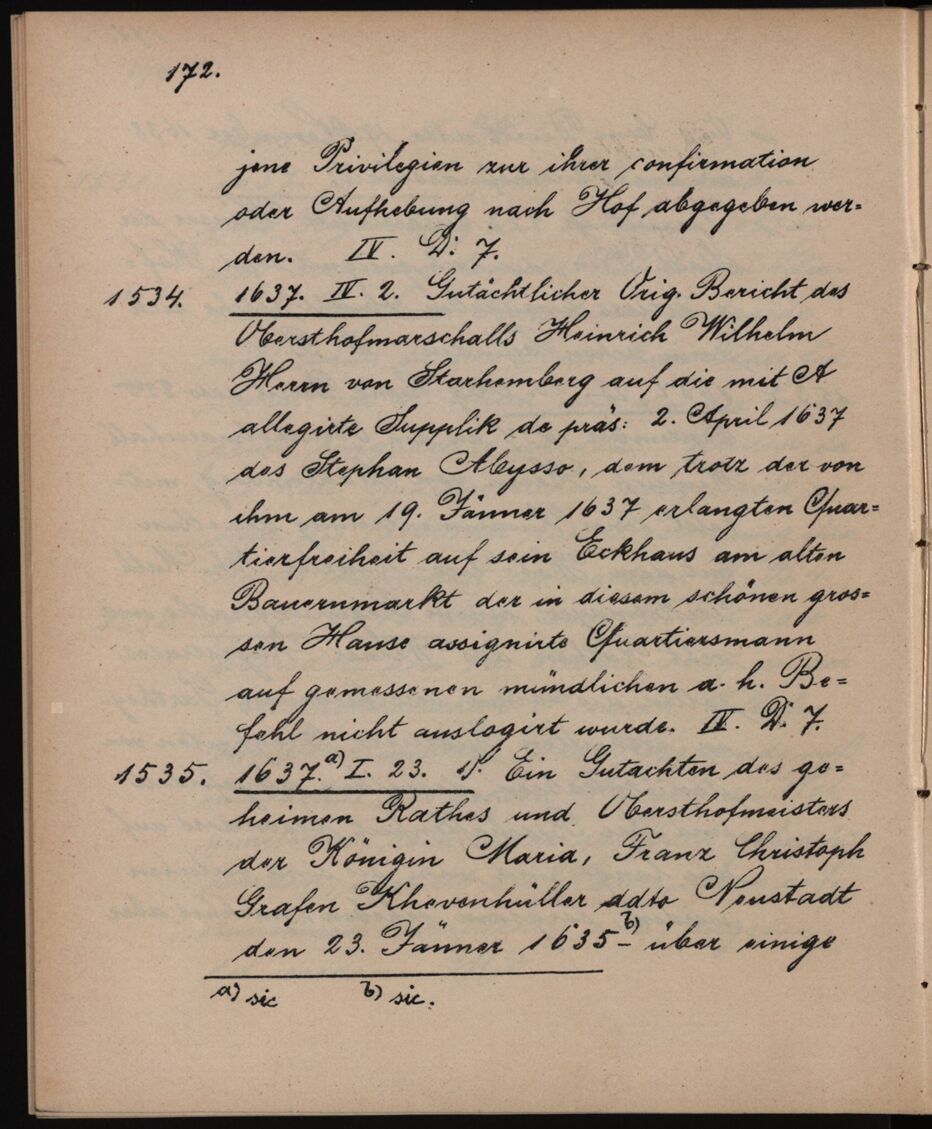 172.
jene Privilegien zur ihrer confirmation
oder Aufhebung nach Hof abgegeben wer=
den. IV. D. 7.
1534. 1637. IV. 2. Gutächtlicher Orig. Bericht des
Obersthofmarschalls Heinrich Wilhelm
Herrn von Starhemberg auf die mit A
allegirte Supplik de präs: 2. April 1637
des Stephan Abysso, dem trotz der von
ihm am 19. Jänner 1637 erlangten Quar=
tierfreiheit auf sein Eckhaus am alten
Bauernmarkt der in diesem schönen gros=
sen Hause assignirte Quartiersmann
auf gemessenen mündlichen a. h. Be=
fehl nicht auslogirt wurde. IV. D. 7.
1535. 1637.a) I. 23. 1). Ein Gutachten des ge=
heimen Rathes und Obersthofmeisters
der Königin Maria, Franz Christoph
Grafen Khevenhüller ddto Neustadt
den 23. Jänner 1635 b) über einige
a) sic b) sic.